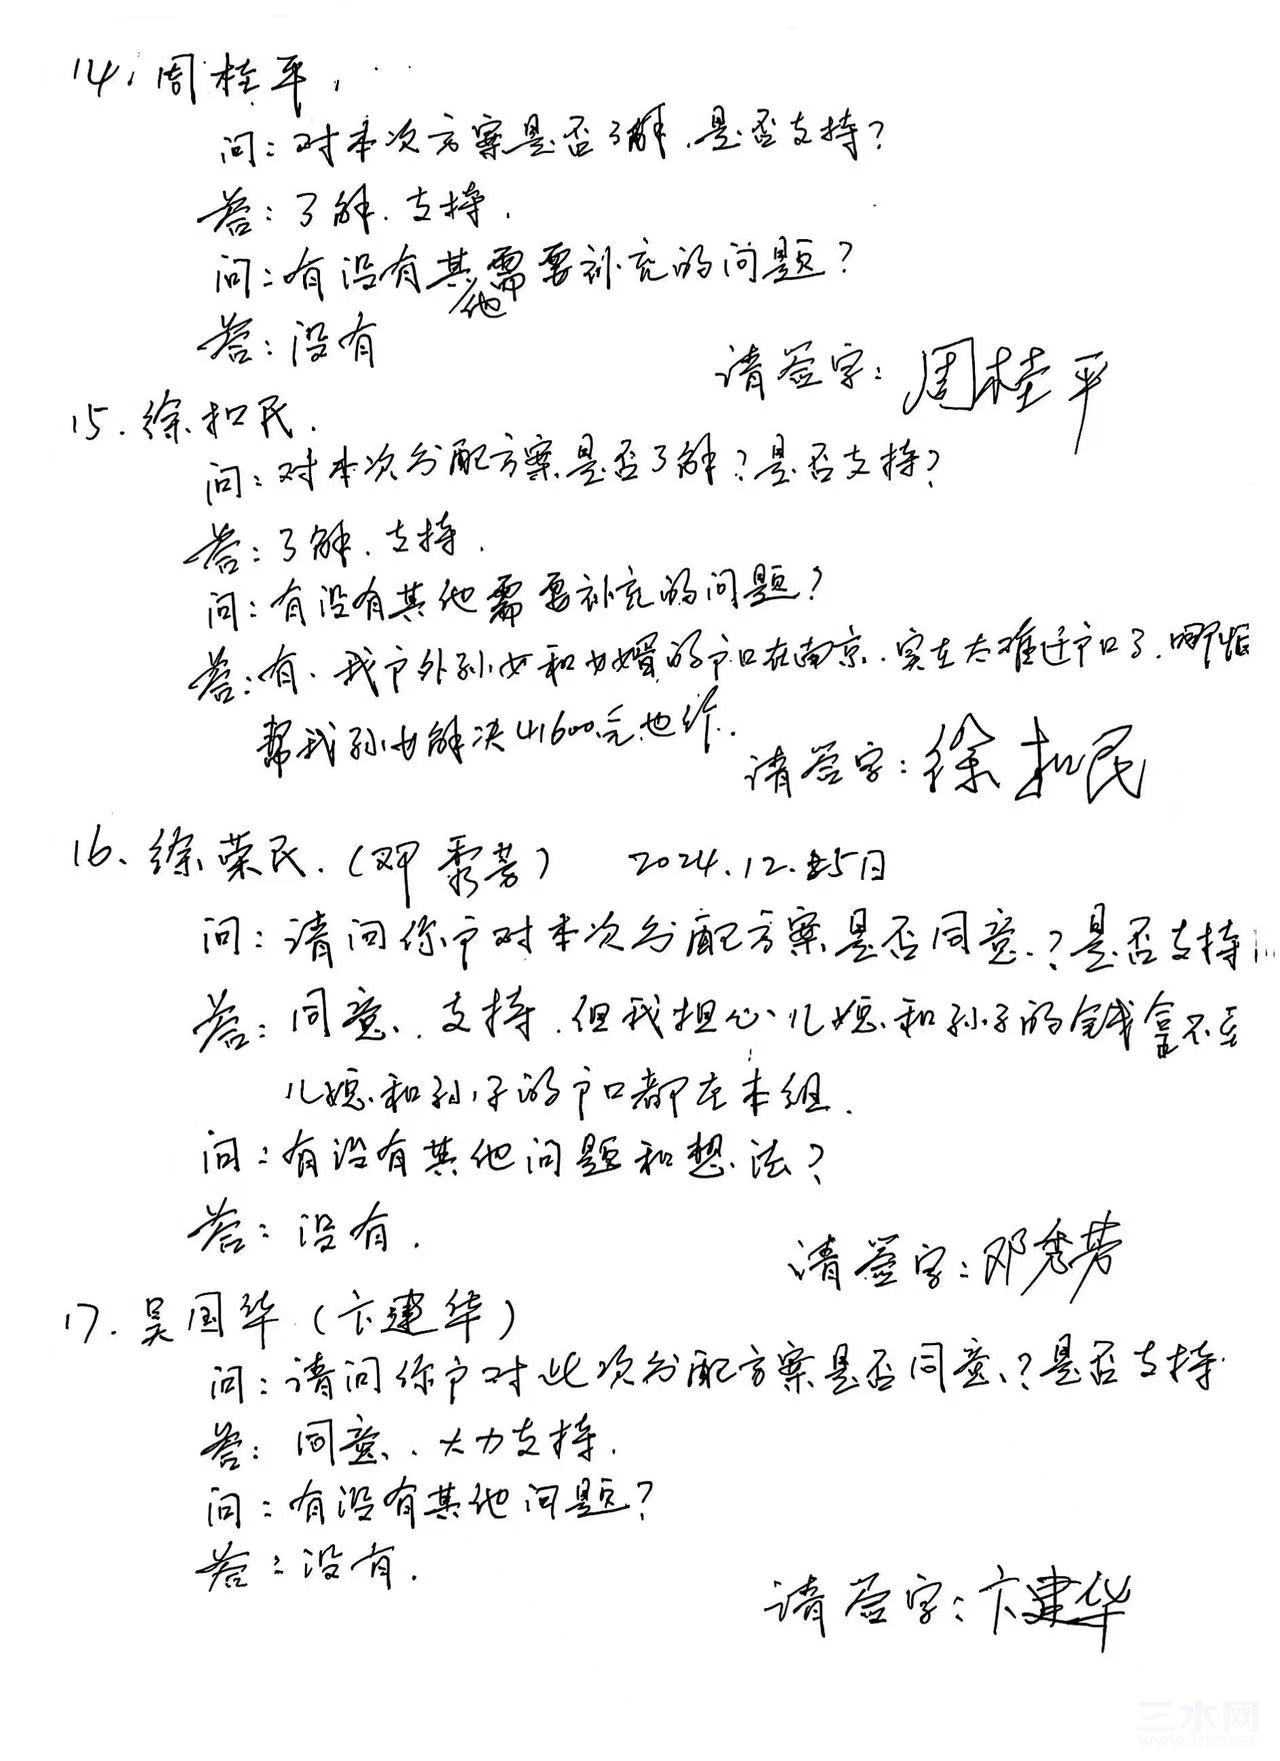 14. 周桂平.
问：对本次方案是否了解.是否支持?
答：了解.支持.
问：有没有其他需要补充的问题?
答：没有
请签字：周桂平
15. 徐扣民.
问：对本次分配方案是否了解?是否支持?
答：了解.支持.
问：有没有其他需要补充的问题?
答：有.我户外孙女和女婿的户口在南京.实在太难迁户口了.哪怕
帮我孙女解决41600元也行.
请签字：徐扣民
16、徐荣民.(邓秀芳) 2024.12.25日
问：请问你户对本次分配方案是否同意.?是否支持
答：同意.支持.但我担心儿媳和孙子的钱拿不至
儿媳和孙子的户口都在本组.
问：有没有其他问题和想法?
答：没有.
请签字：邓秀芳
17. 吴国华(卞建华)
问：请问你户对此次分配方案是否同意、?是否支持
答：同意、大力支持.
问：有没有其他问题?
答：没有.
请签字：卞建华
三水网
WWW.JYSS.NET